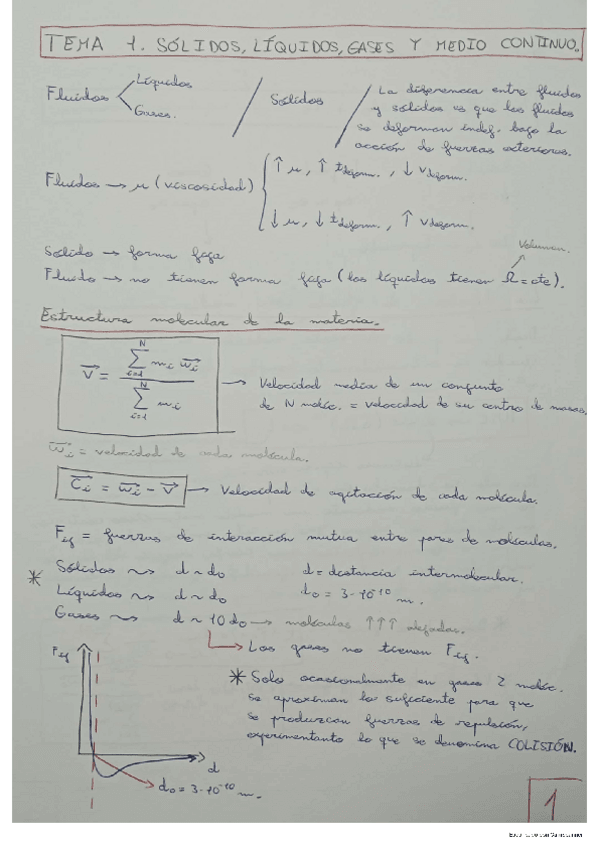 TEMA 1. SÓLIDOS, LÍQUIDOS, GASES Y MEDIO CONTINUO.
Fluidos < Líquidos
Gases.
Sólidos
La diferencia entre fluidos
y sólidos es que los fluidos
se deforman indef. bajo la
acción de fuerzas exteriores.
Fluidos → μ (viscosidad)
↑ μ, ↑ t deform., ↓ v deform.
↓ μ, ↓ t deform., ↑ v deform.
Sólido → forma fija
Volumen.
Fluido → no tienen forma fija (los líquidos tienen Ω = cte).
Estructura molecular de la materia.
V⃗ = Σ(i=1, N) mi w⃗i / Σ(i=1, N) mi
→ Velocidad media de un conjunto
de N moléc. = velocidad de su centro de masas.
w⃗i = velocidad de cada molécula.
C⃗i = w⃗i - V⃗ → Velocidad de agitación de cada molécula.
Fij = fuerzas de interacción mutua entre pares de moléculas.
* Sólidos ~> d ~ d0
d = distancia intermolecular.
Líquidos ~> d ~ d0
d0 = 3·10^-10 m.
Gases ~> d ~ 10 d0 → moléculas ↑↑↑ alejadas.
→ Los gases no tienen Fij.
* Solo ocasionalmente en gases 2 moléc.
se aproximan lo suficiente para que
se produzcan fuerzas de repulsión,
experimentanto lo que se denomina COLISIÓN.
Fij
d
d0 = 3·10^-10 m.
1